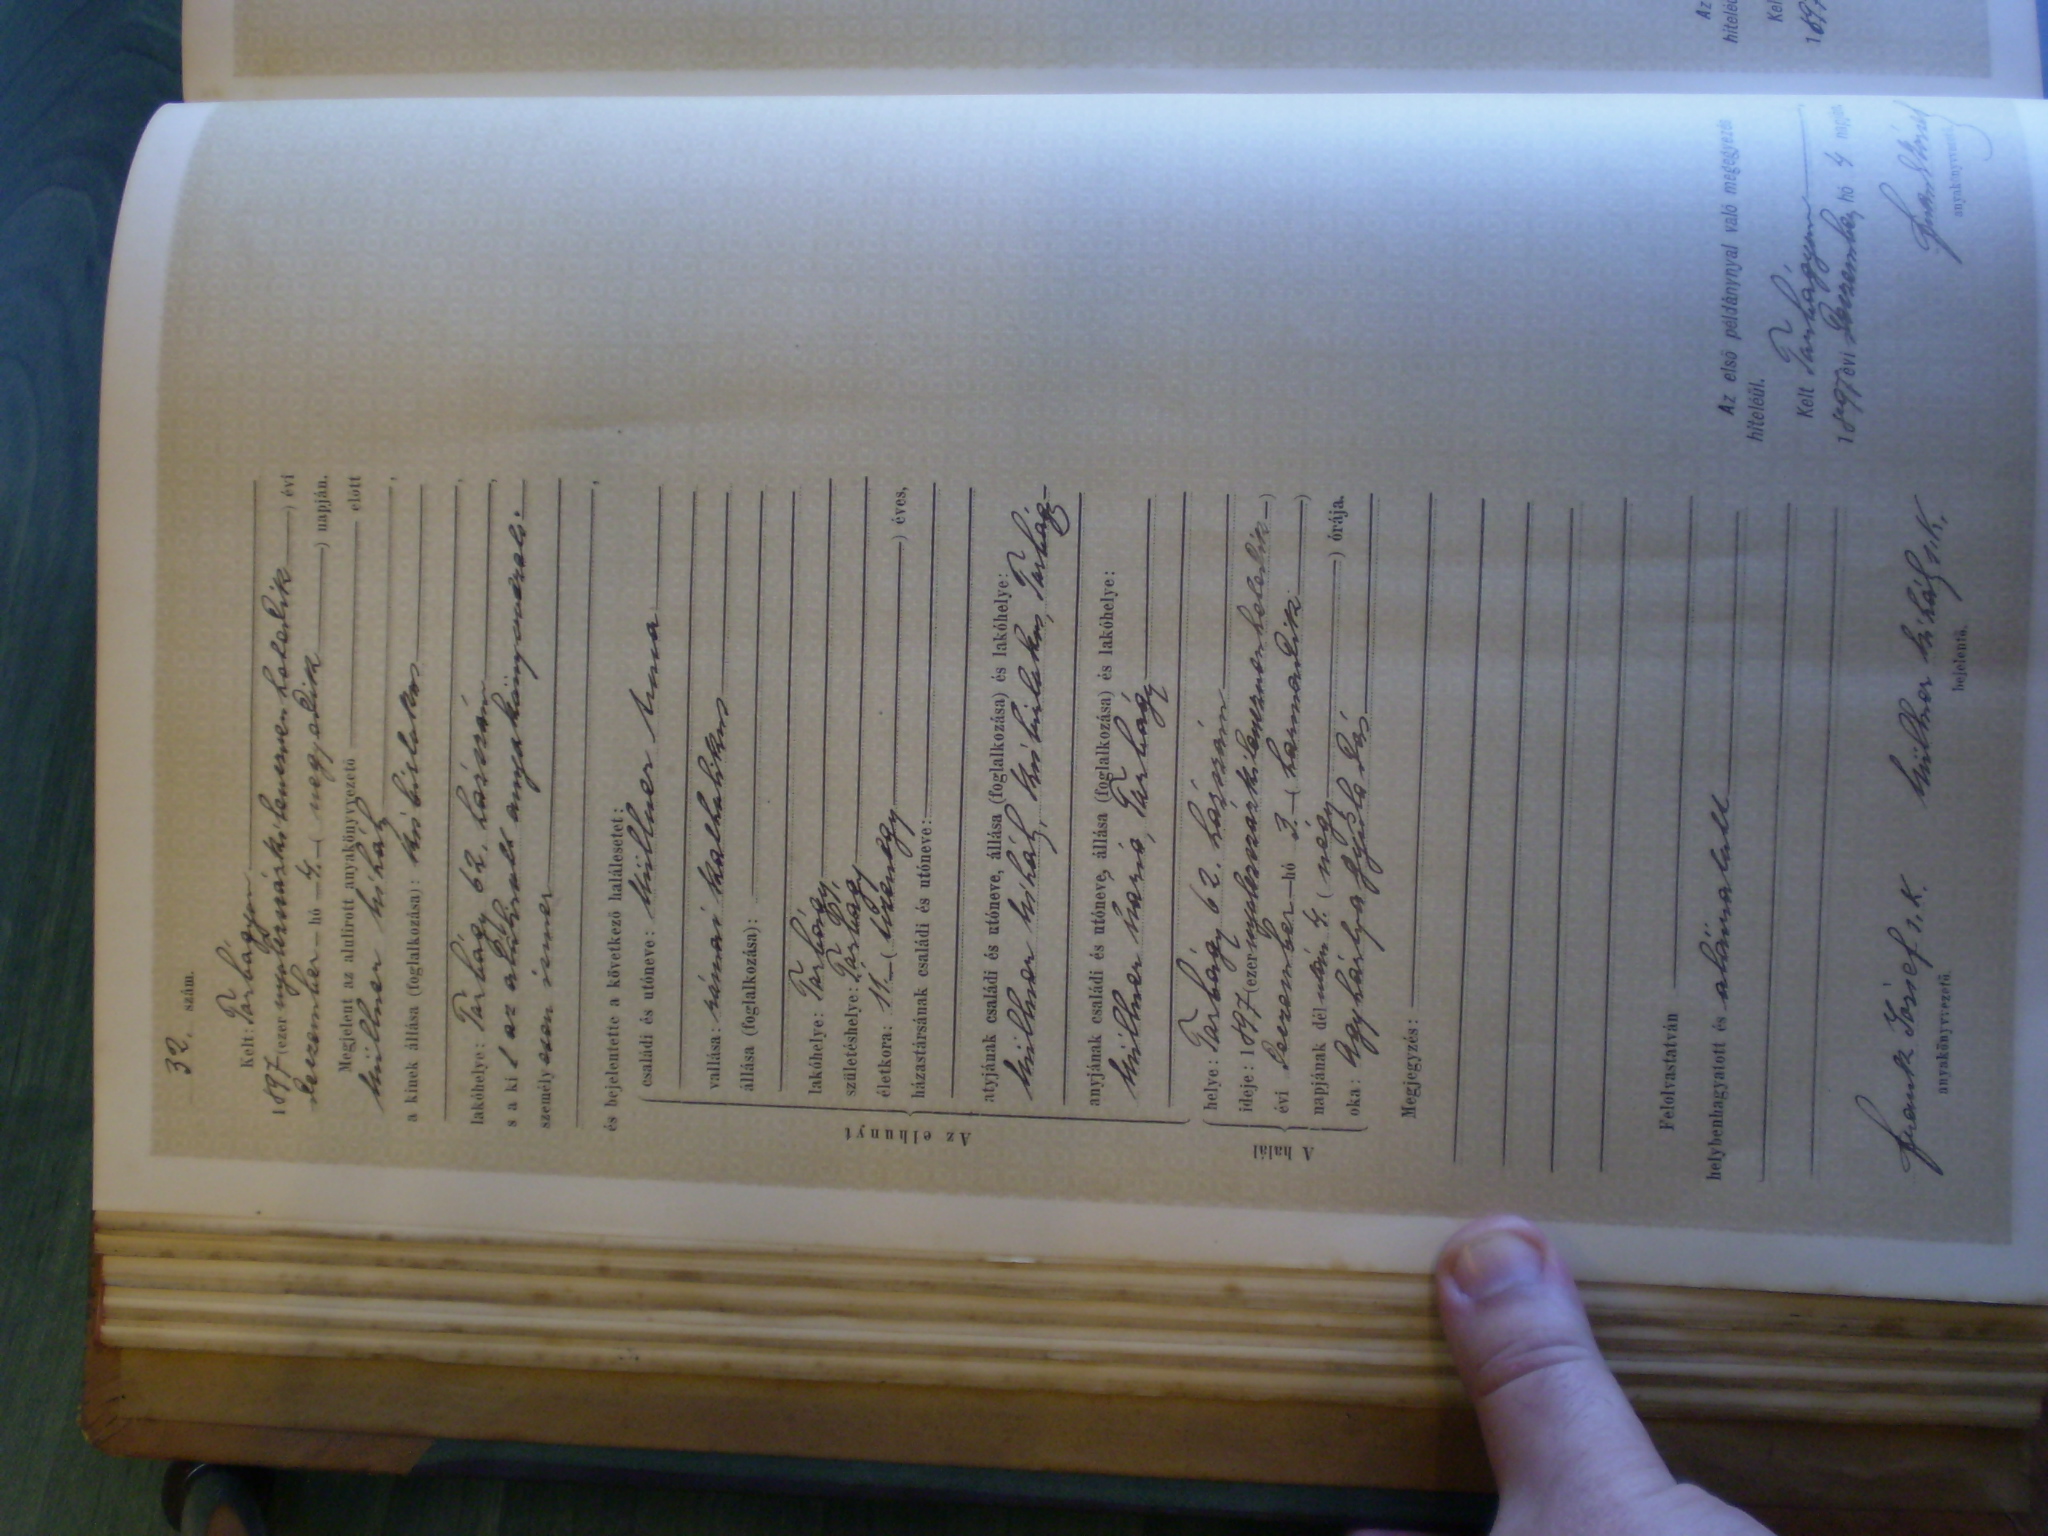 32. szám.
Kelt: Tarhágyon
1897 (ezer nyolczszázkilenczvenhetedik) évi
deczember hó 4. (negyedik) napján.
Megjelent az alulirott anyakönyvvezető előtt
Müllner Mihály
a kinek állása (foglalkozása): kisbirtokos,
lakóhelye: Tarhágy 62. házszám,
s a ki t az alulirott anyakönyvvezető,
személyesen ismer,
és bejelentette a következő halálesetet:
Az elhunyt
családi és utóneve: Müllner Anna
vallása: római katholikus
állása (foglalkozása):
lakóhelye: Tarhágy
születéshelye: Tarhágy
életkora: 11. (tizenegy) éves,
házastársának családi és utóneve:
atyjának családi és utóneve, állása (foglalkozása) és lakóhelye:
Müllner Mihály, kisbirtokos, Tarhágy
anyjának családi és utóneve, állása (foglalkozása) és lakóhelye:
Müllner Mária, Tarhágy
A halál
helye: Tarhágy 62. házszám
ideje: 1897 (ezer nyolczszázkilenczvenhetedik)
évi deczember hó 3. (harmadik)
napjának dél után 4. (négy) órája.
oka: Agyhártyagyuladás
Megjegyzés:
Felolvastatván
helybenhagyatott és aláíratott
Frank József s. k.
anyakönyvvezető.
Müllner Mihály s. k.
bejelentő.
Az első példánynyal való megegyezés
hiteléül.
Kelt Tarhágyon
1897 évi deczember hó 4 napján
Frank József
anyakönyvvezető.
Az
hiteléü
Kel
189